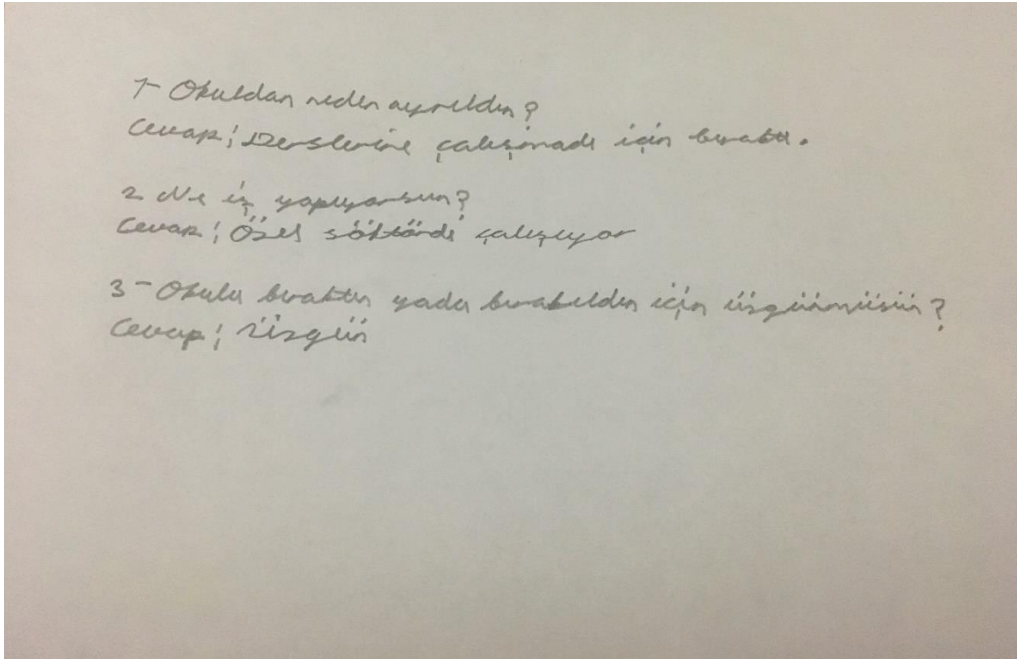 1- Okuldan neden ayrıldın?
Cevap; Derslerine çalışmadı için bıraktı.
2 Ne iş yapıyorsun?
Cevap; Özel söktörde çalışıyor
3- Okulu bıraktın yada bırakıldın için üzgünmüsün?
Cevap; Üzgün